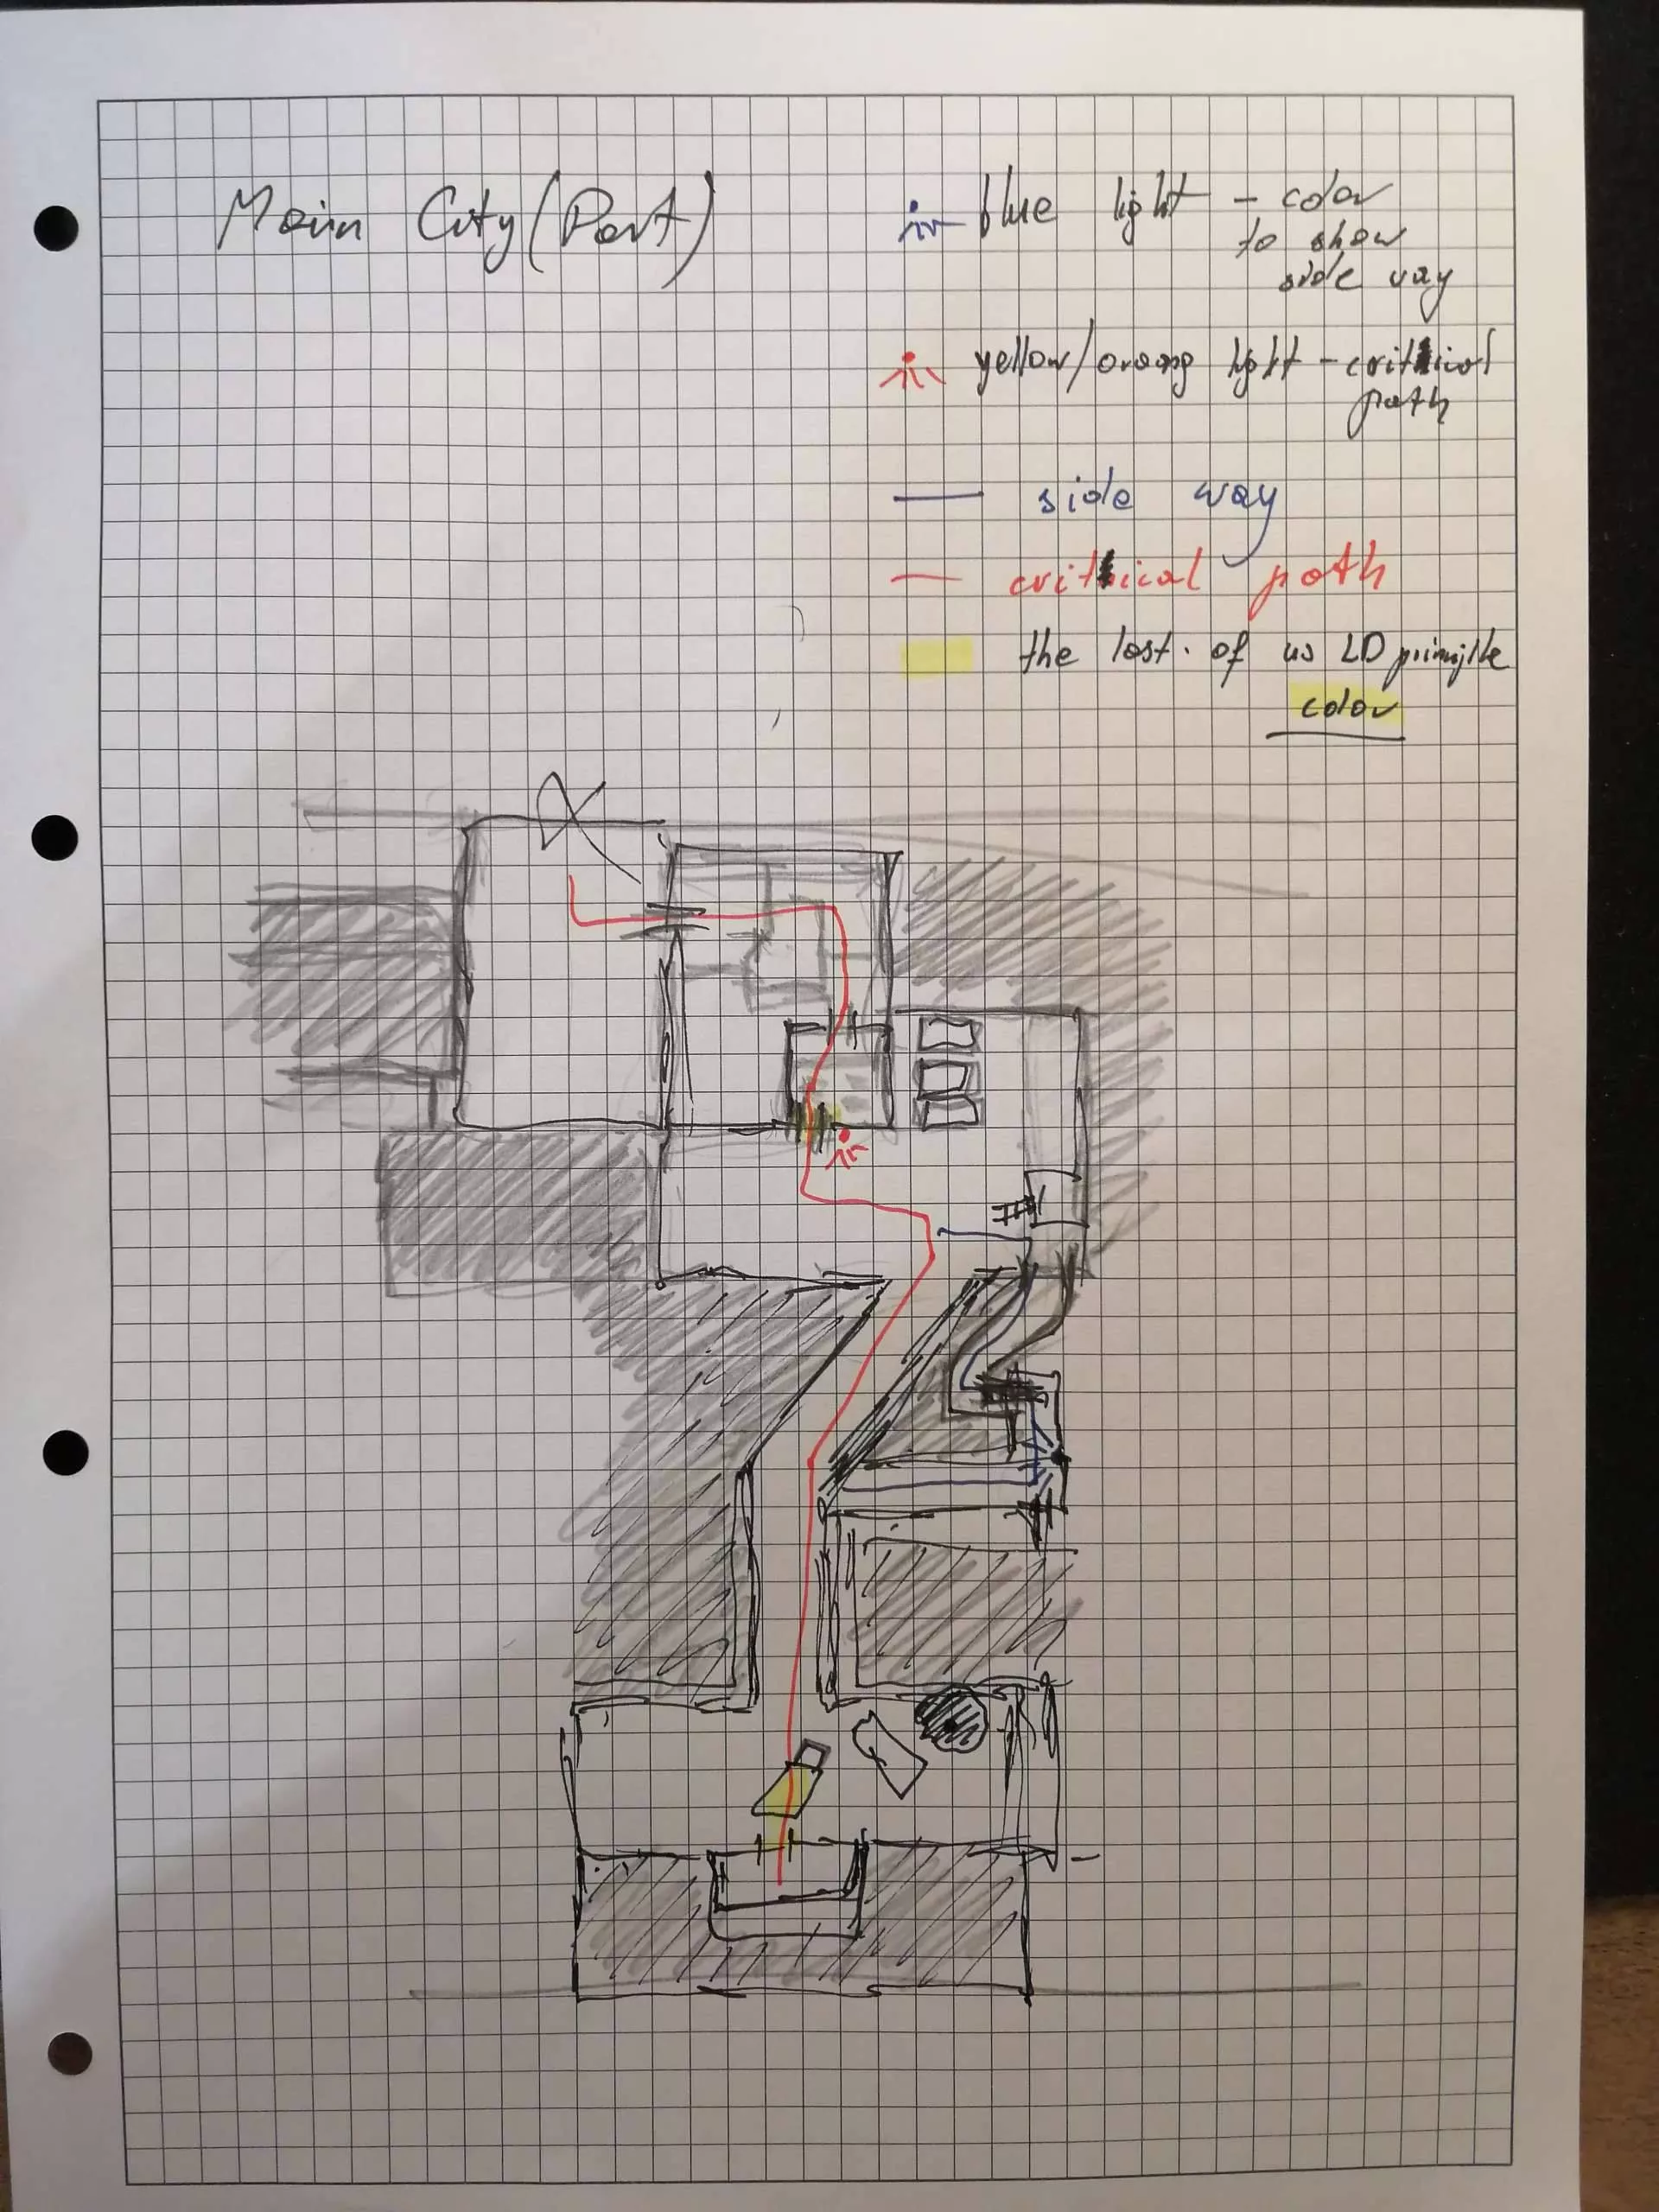 Main City (Part)
blue light - color
to show
side way
yellow/orang light - critical
path
side way
critical path
the last of us LD prinziple
color